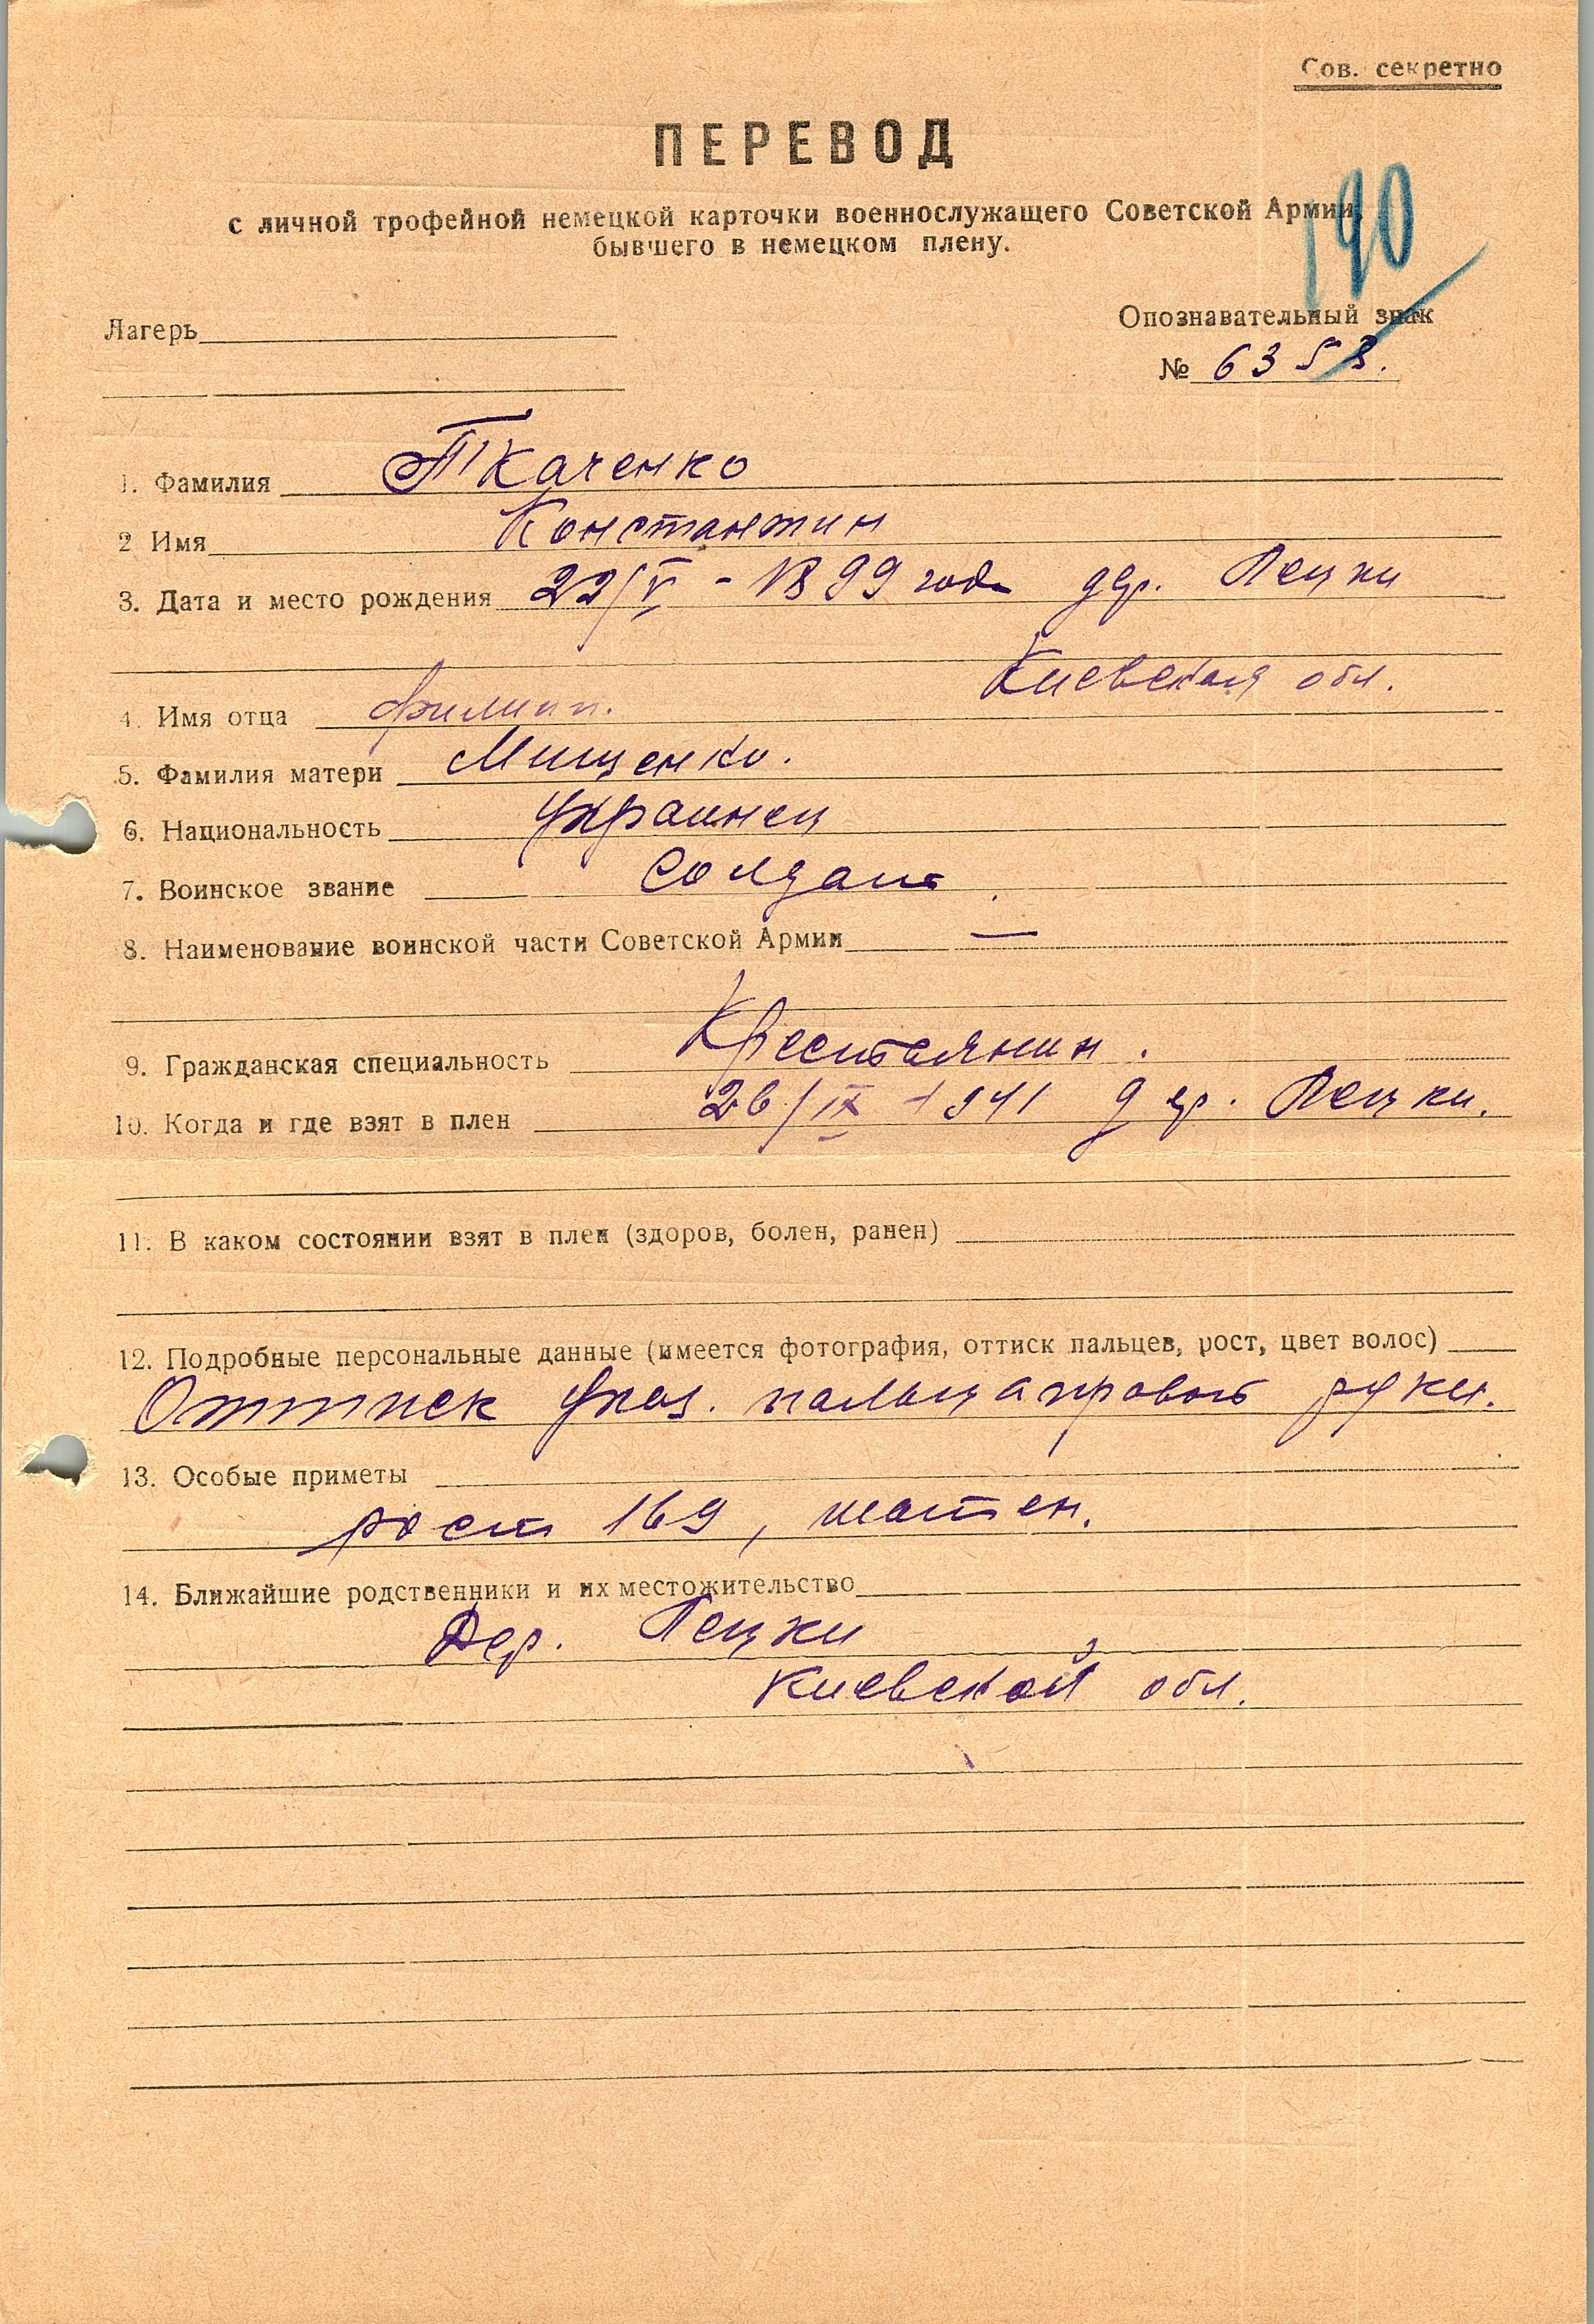 Сов. секретно
ПЕРЕВОД
с личной трофейной немецкой карточки военнослужащего Советской Армии,
бывшего в немецком плену.
190
Лагерь
Опознавательный знак
№ 6358.
1. Фамилия Ткаченко
2 Имя Константин
3. Дата и место рождения 22/V - 1899 года дер. Пецки
Киевская обл.
4. Имя отца Филипп.
5. Фамилия матери Мищенко.
6. Национальность Украинец
7. Воинское звание Солдат
8. Наименование воинской части Советской Армии —
9. Гражданская специальность Крестьянин.
10. Когда и где взят в плен 26/IX - 1941 дер. Пецки.
11. В каком состоянии взят в плен (здоров, болен, ранен)
12. Подробные персональные данные (имеется фотография, оттиск пальцев, рост, цвет волос)
Оттиск указ. пальца правой руки.
13. Особые приметы
рост 169, шатен.
14. Ближайшие родственники и их местожительство
Дер. Пецки
Киевской обл.